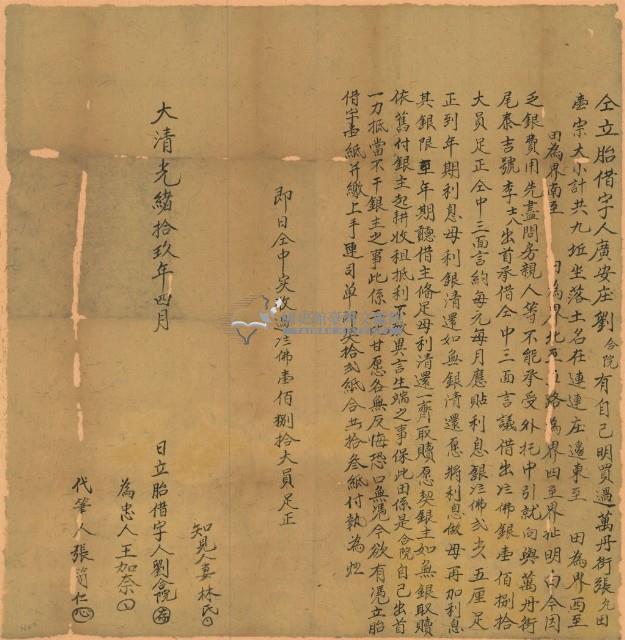 仝立胎借字人廣安庄劉合院有自己明買過萬丹街張允田
壹宗大小計共九坵坐落土名在連連庄邊東至 田為界西至
田為界南至 田為界北至 路為界四至界址明白今因
乏銀費用先盡問房親人等不能承受外托中引就向與萬丹街
尾泰吉號李 出首承借仝中三面言議借出 佛銀壹佰捌拾
大員足正仝中三面言約每元每月應貼利息銀 佛弍 五厘足
正到年期利息母利銀清還如無銀清還愿將利息做母再加利息
其銀限至年期聽借主俻足母利清還一齊取贖愿契銀主如無銀取贖
依舊付銀主起耕收租抵利不敢異言生端之事保此田係是合院自己出首
一力抵當不干銀主之事此係 甘愿各無反悔恐口無憑今欲有憑立胎
借字壹紙并繳上手連司單 拾弍紙合共拾叁紙付執為炤
即日仝中实收 佛壹佰捌拾大員足正
知見人妻林氏
大清光緒拾玖年四月 日立胎借字人劉合院
為忠人王加奈
代筆人張 仁